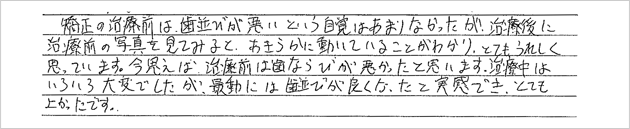 矯正の治療前は歯並びが悪いという自覚はあまりなかったが、治療後に
治療前の写真を見てみると、あきらかに動いていることがわかり、とてもうれしく
思っています。今思えば、治療前は歯ならびが悪かったと思います。治療中は
いろいろ大変でしたが、最動には歯並びが良くなったと実感でき、とても
上かったです。